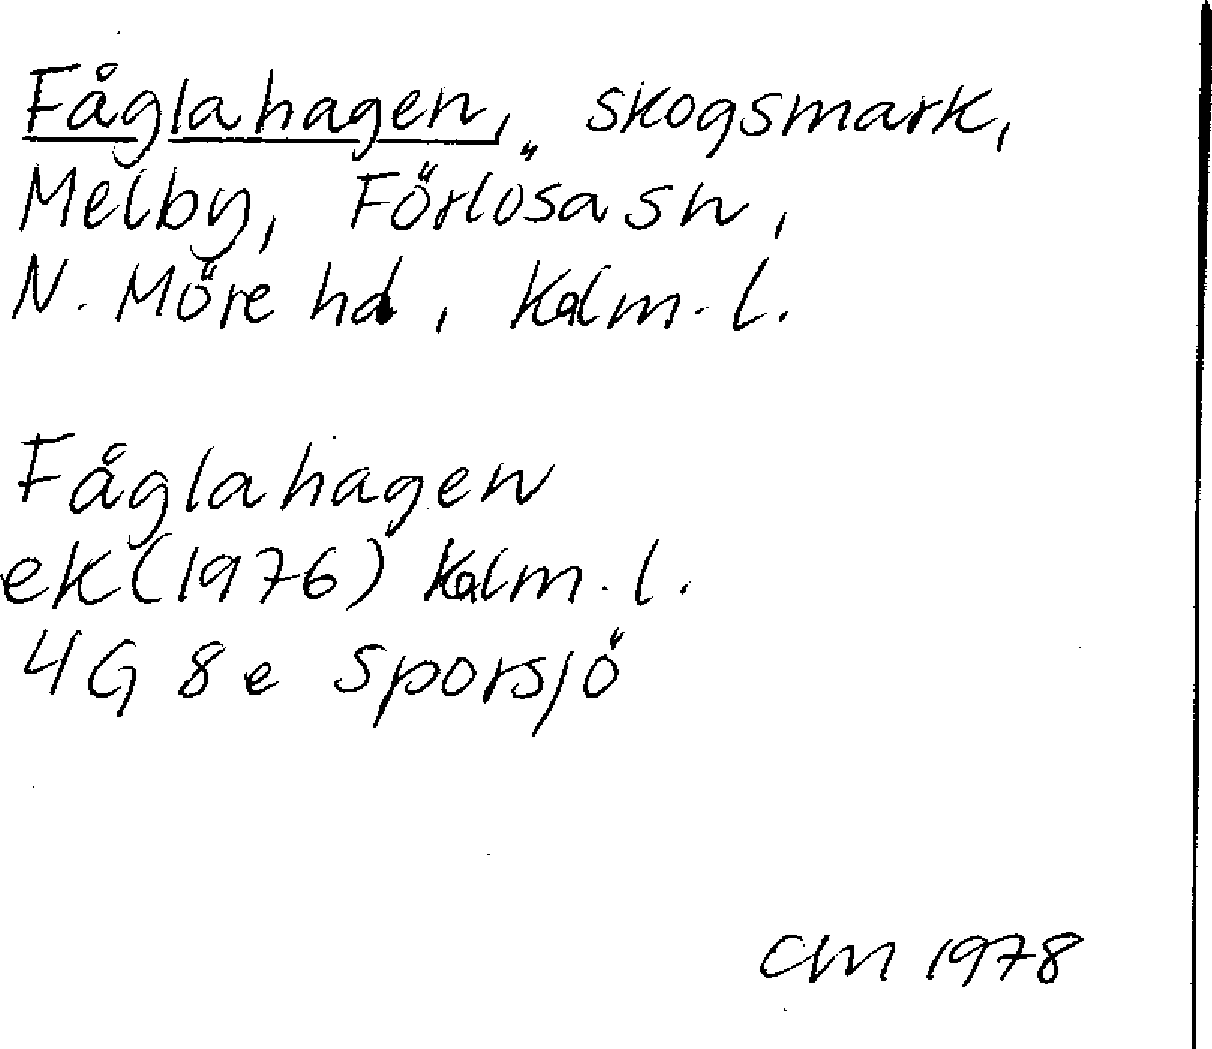 Fåglahagen, skogsmark,
Melby, Förlösa sn,
N. Möre hd, Kalm. l.
Fåglahagen
ek (1976) Kalm. l.
4G 8e Sporsjö
CM 1978